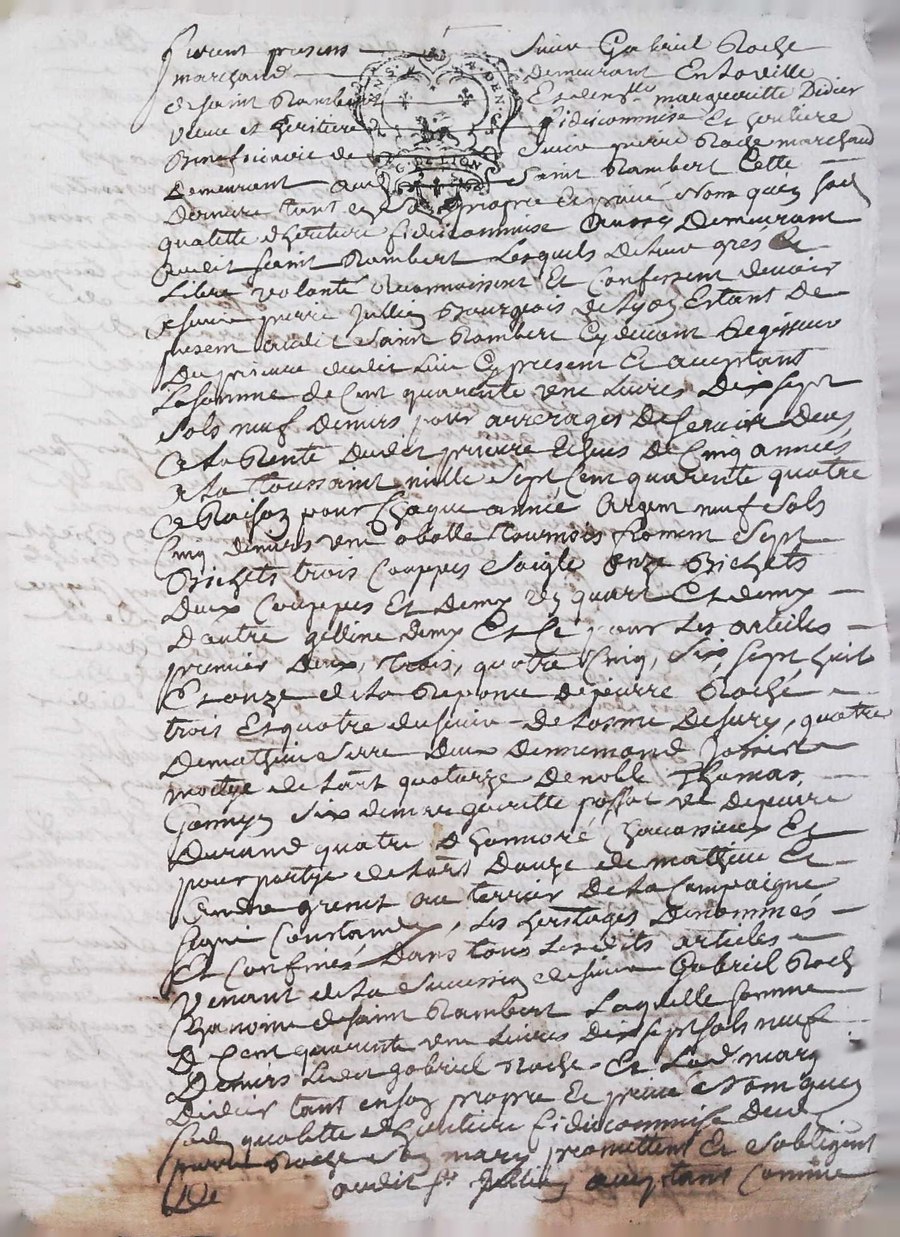 furent presens sieur Gabriel Roche
marchand demeurant en la ville
de saint Rambert et dem.lle margueritte Didier
veuve et heritiere fidicommise et heritiere
Beneficiaire de sieur pierre Roche marchand
G. DE LION
demeurant audit saint Rambert cette
derniere tant en son propre et privé nom qu'en sad
qualitté d'heritiere fidicommise aussy demeurant
audit saint Rambert lesquels de leur grés et
libre volonté reconnaissent et confessent devoir
a sieur pierre Jullien Bourgeois de Lyon estant de
present audit saint Rambert cy devant Regisseur
du prieuré dudit lieu cy present et acceptant
la somme de cent quarente une livres dix sept
sols neuf deniers pour arrerages de servis deus
a la Rente dudit prieuré echeus de cinq années
a la toussaint mille sept cent quarente quatre
a Raison pour chaque année argent neuf sols
cinq deniers une obolle tournois froment sept
Bichets trois couppes seigle onze Bichets
deux couppes et demy un quart et demy
d'autre gelline demy et ce pour les articles
premier deux, trois, quatre cinq, six, sept huit
et onze de la Reponce de pierre Roche
trois et quatre du sieur de de Sury, quatre
de mathieu serre deux d'ennemond
moitye de l'art quatorze de noble Thomas
six de margueritte et de pierre
Durand quatre d'honnoré et
pour partye de l'art douze de mathieu et
andré grenit au terrier de la Compaigne
signé Constand, les heritages denommés
et confinés dans tous lesdits articles
venant de la succession de sieur Gabriel Roche
chanoine de saint Rambert laquelle somme
de cent quarente une livres dix sept sols neuf
deniers ledit gabriel Roche et lad marg
Didier tant en son propre et privé nom qu'en
sad qualitté d'heritiere fidicommise dud
pierre Roche son mary promettent et s'obligent
de audit sr Jullien acceptant comme